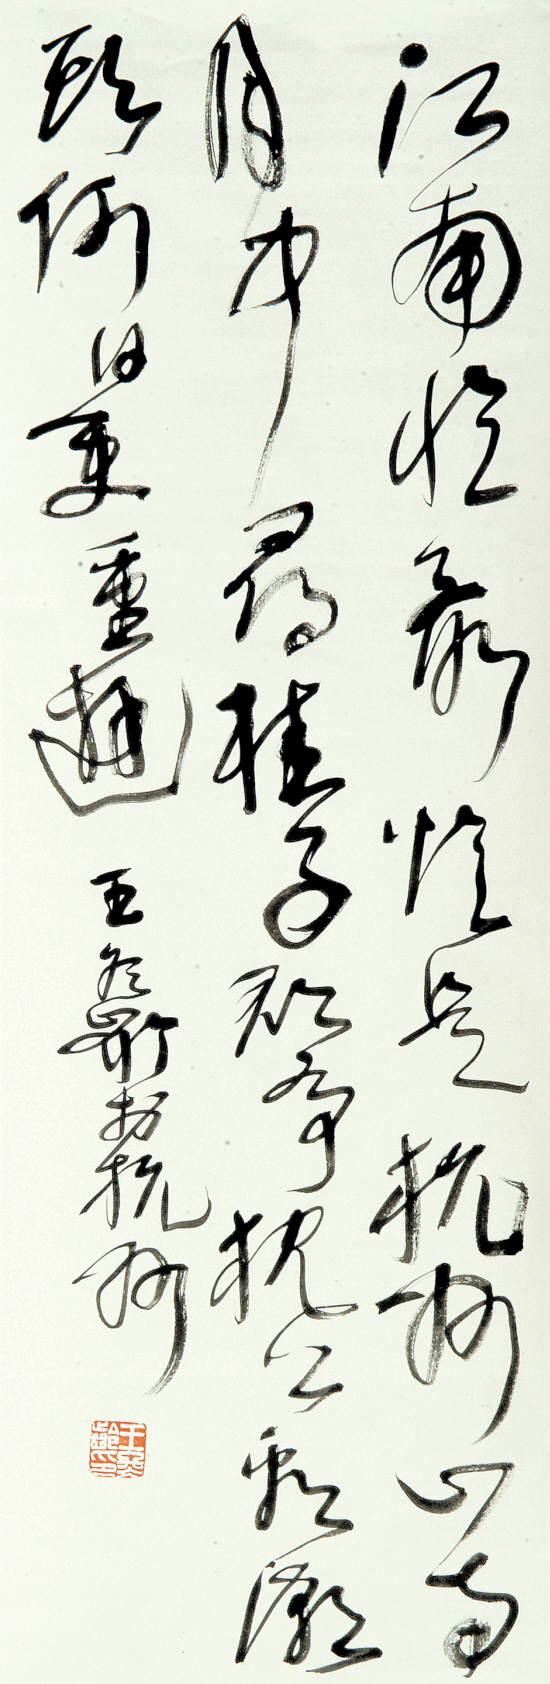 江南憶最憶是杭州山寺
月中尋桂子郡亭枕上看潮
頭何日更重遊
王冬齡於杭州
王冬齡印